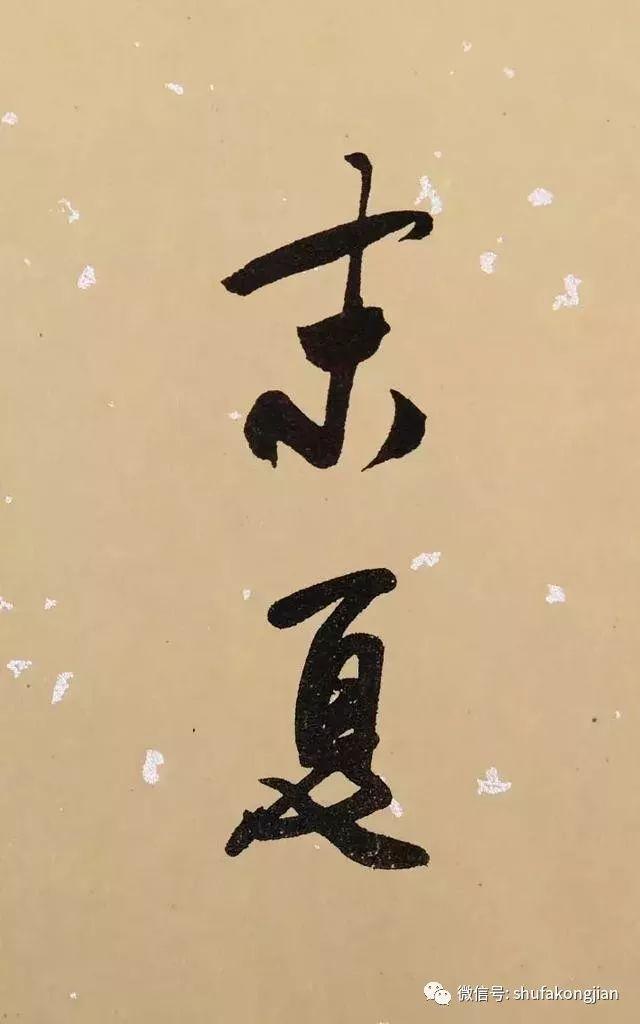 末夏
微信号: shufakongjian